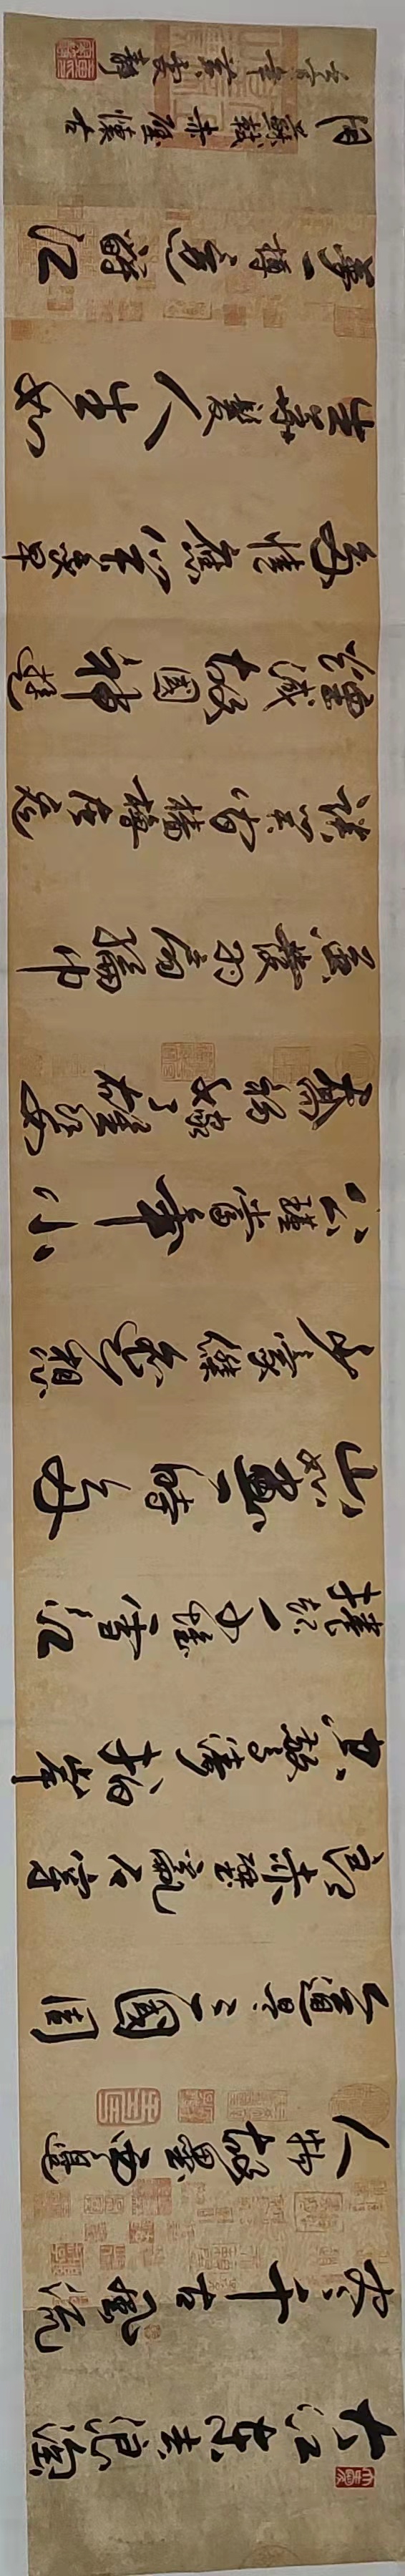 大江東去浪淘
盡千古風流
人物故壘西邊
人道是三國周
郎赤壁亂石穿
空驚濤拍岸
捲起千堆雪江
山如畫一時多
少豪傑遙想
公瑾當年小
喬初嫁了雄姿
英發羽扇綸巾
談笑間檣櫓灰飛
煙滅故國神遊
多情應笑我早
生華髮人生如
夢一樽還酹江
月蘇軾赤壁懷古